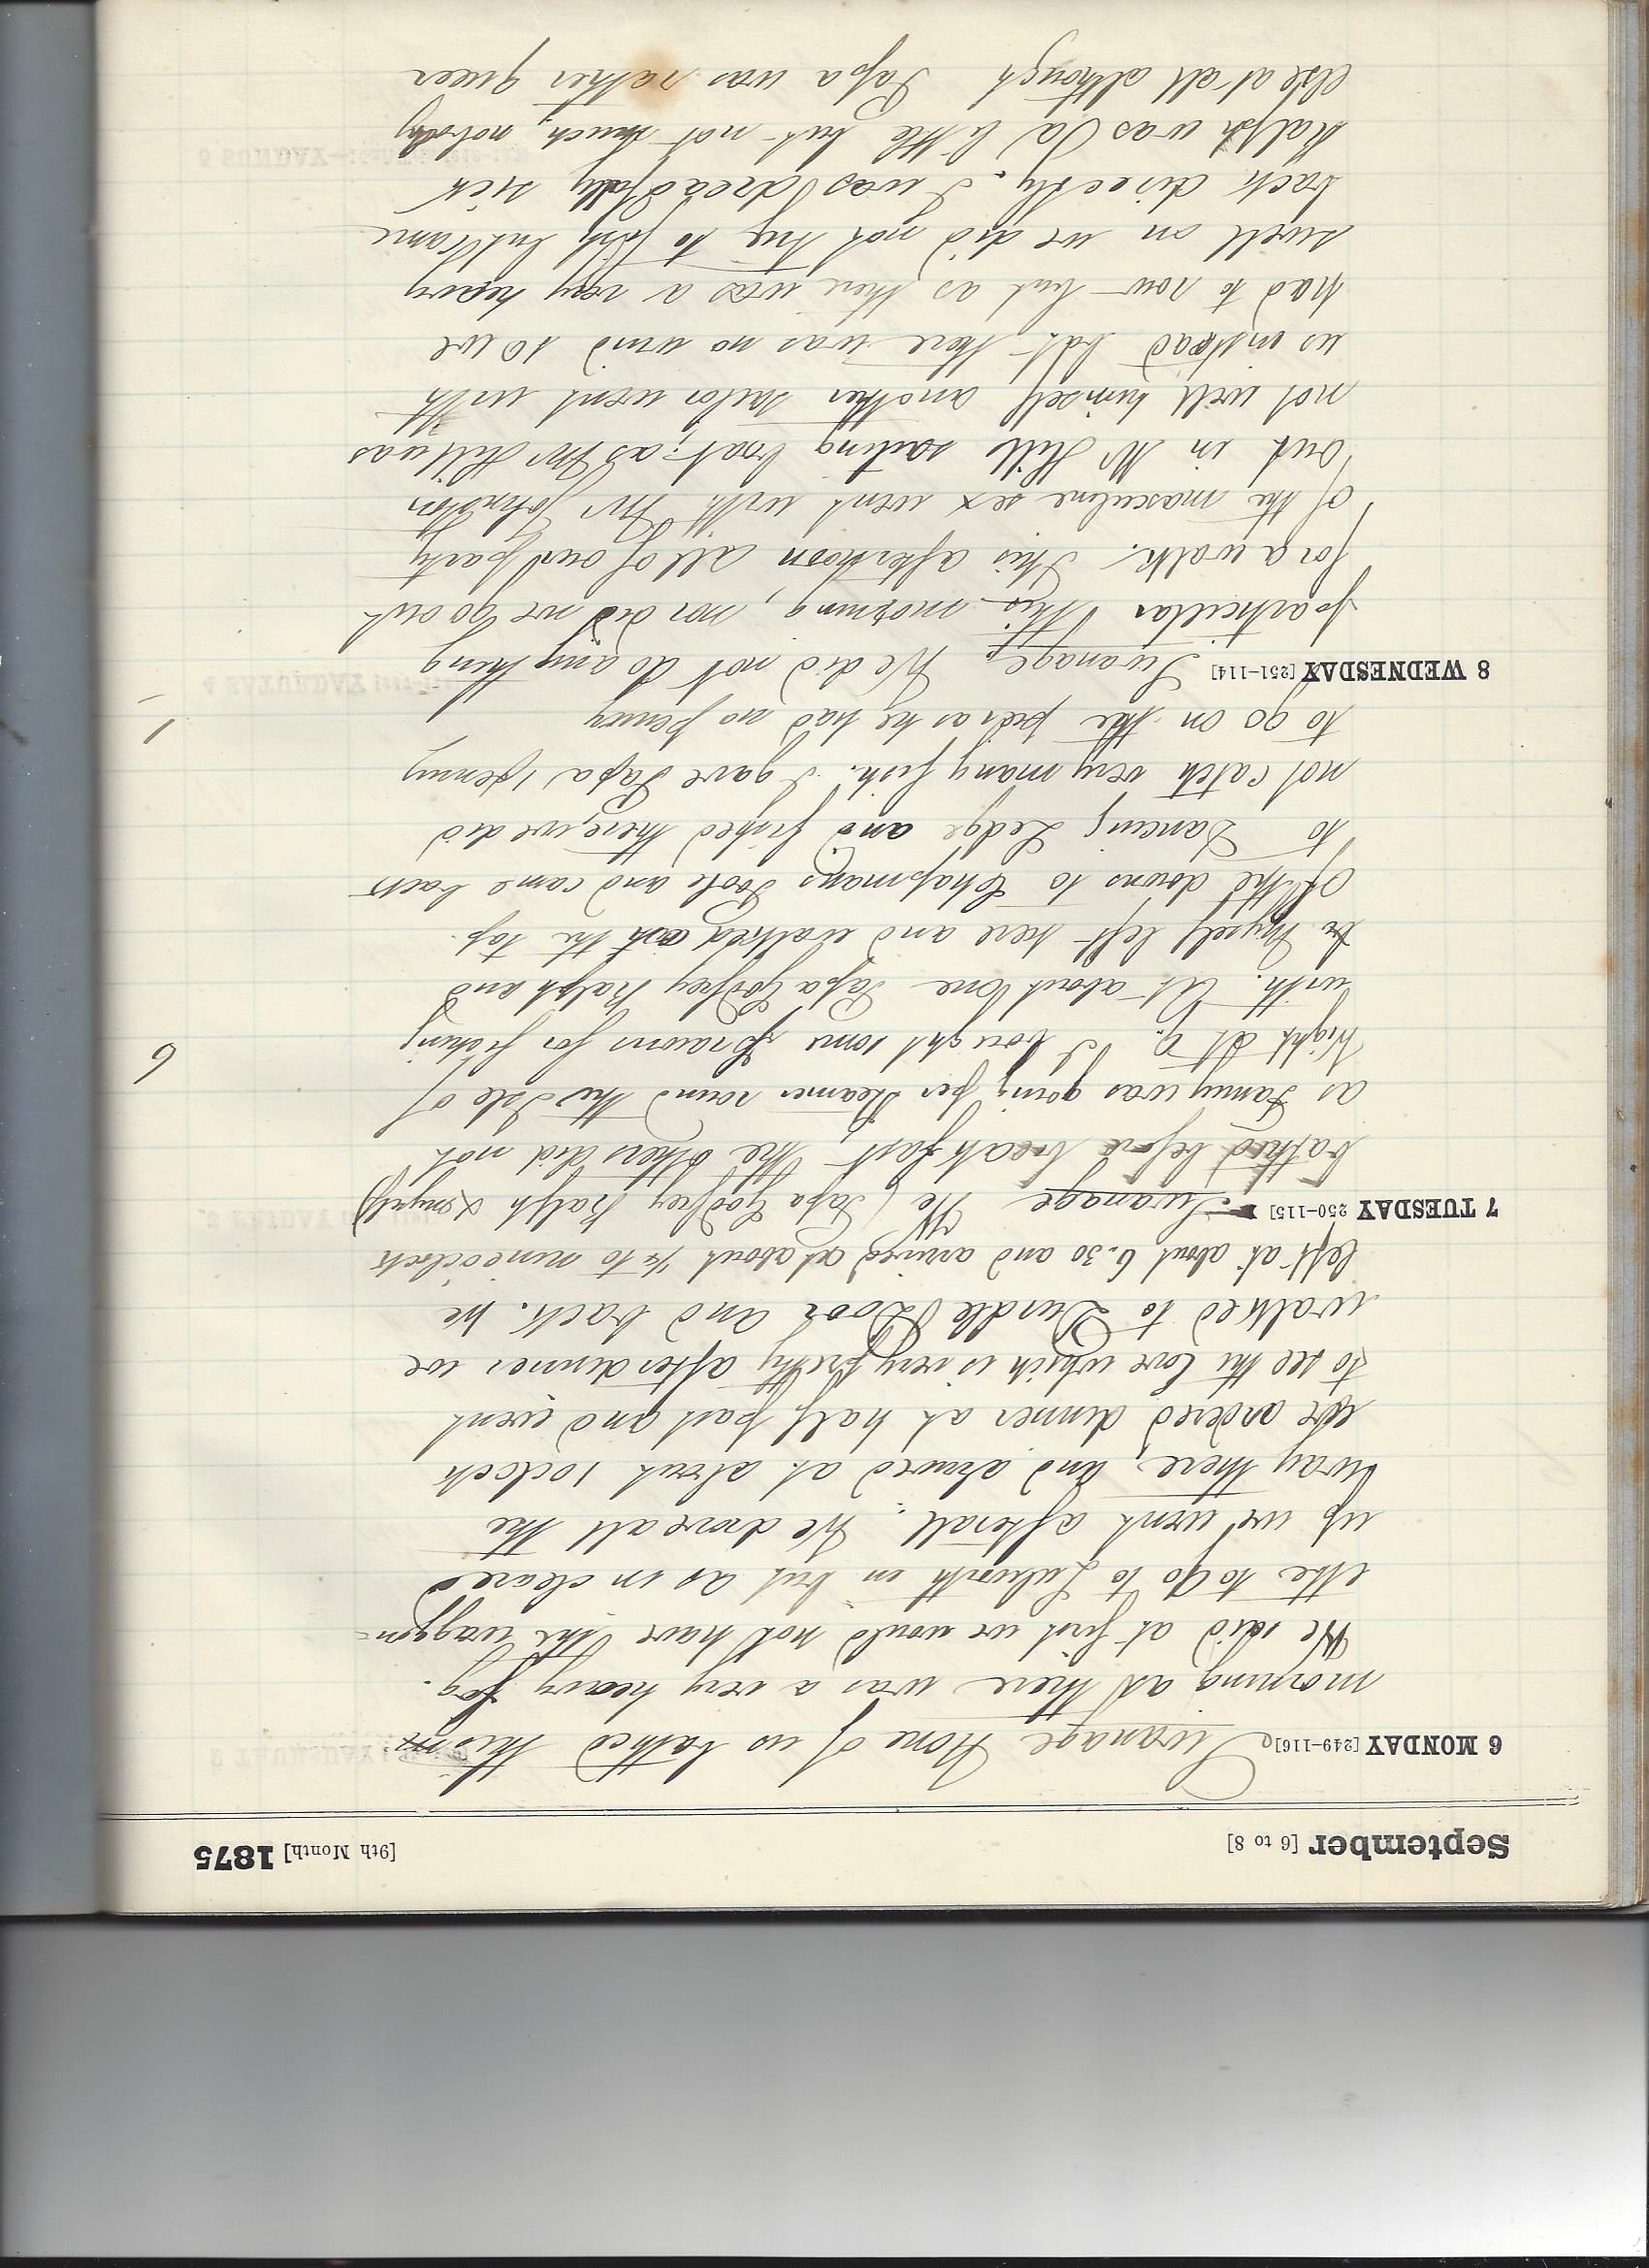 September [6 to 8] [9th Month] 1875
6 MONDAY [249-116] Swanage None of us bathed this
morning as there was a very heavy fog.
We said at first we would not have the waggon-
ette to go to Lulworth in but as in cleared
up we went afterall. We drove all the
way there, and arrived at about 1 oclock
we ordered dinner at half past and went
to see the Cove which is very pretty after dinner we
walked to Durdle Door and back. We
left at about 6.30 and arrived at about ¼ to nine oclock
7 TUESDAY 250-115] Swanage We (Papa Godfrey Ralph & myself)
bathed before breakfast, the others did not
as Fanny was going per steamer round the Isle of
Wight at 9. I bought some prawns for fishing
with. At about one Papa Godfrey Ralph and 6
myself left here and walked on the top
of the downs to Chapmans Poole and came back
to Dancing Ledge and fished there, we did
not catch very many fish. I gave Papa 1 penny
to go on the pier as he had no penny 1
8 WEDNESDAY [251-114] Swanage, We did not do anything
particular this morning, nor did we go out
for a walk. This afternoon all of our party
of the masculine sex went with Mr Johnston
out in Mr Hills sailing boat; as Mr Hill was
not well himself another sailor went with
us instead but there was no wind so we
had to row but as there was a very heavy
swell on we did not try to fish but came
back directly. I was dreadfully sick
Ralph was a little but not much, nobody
else at all although Papa was rather queer